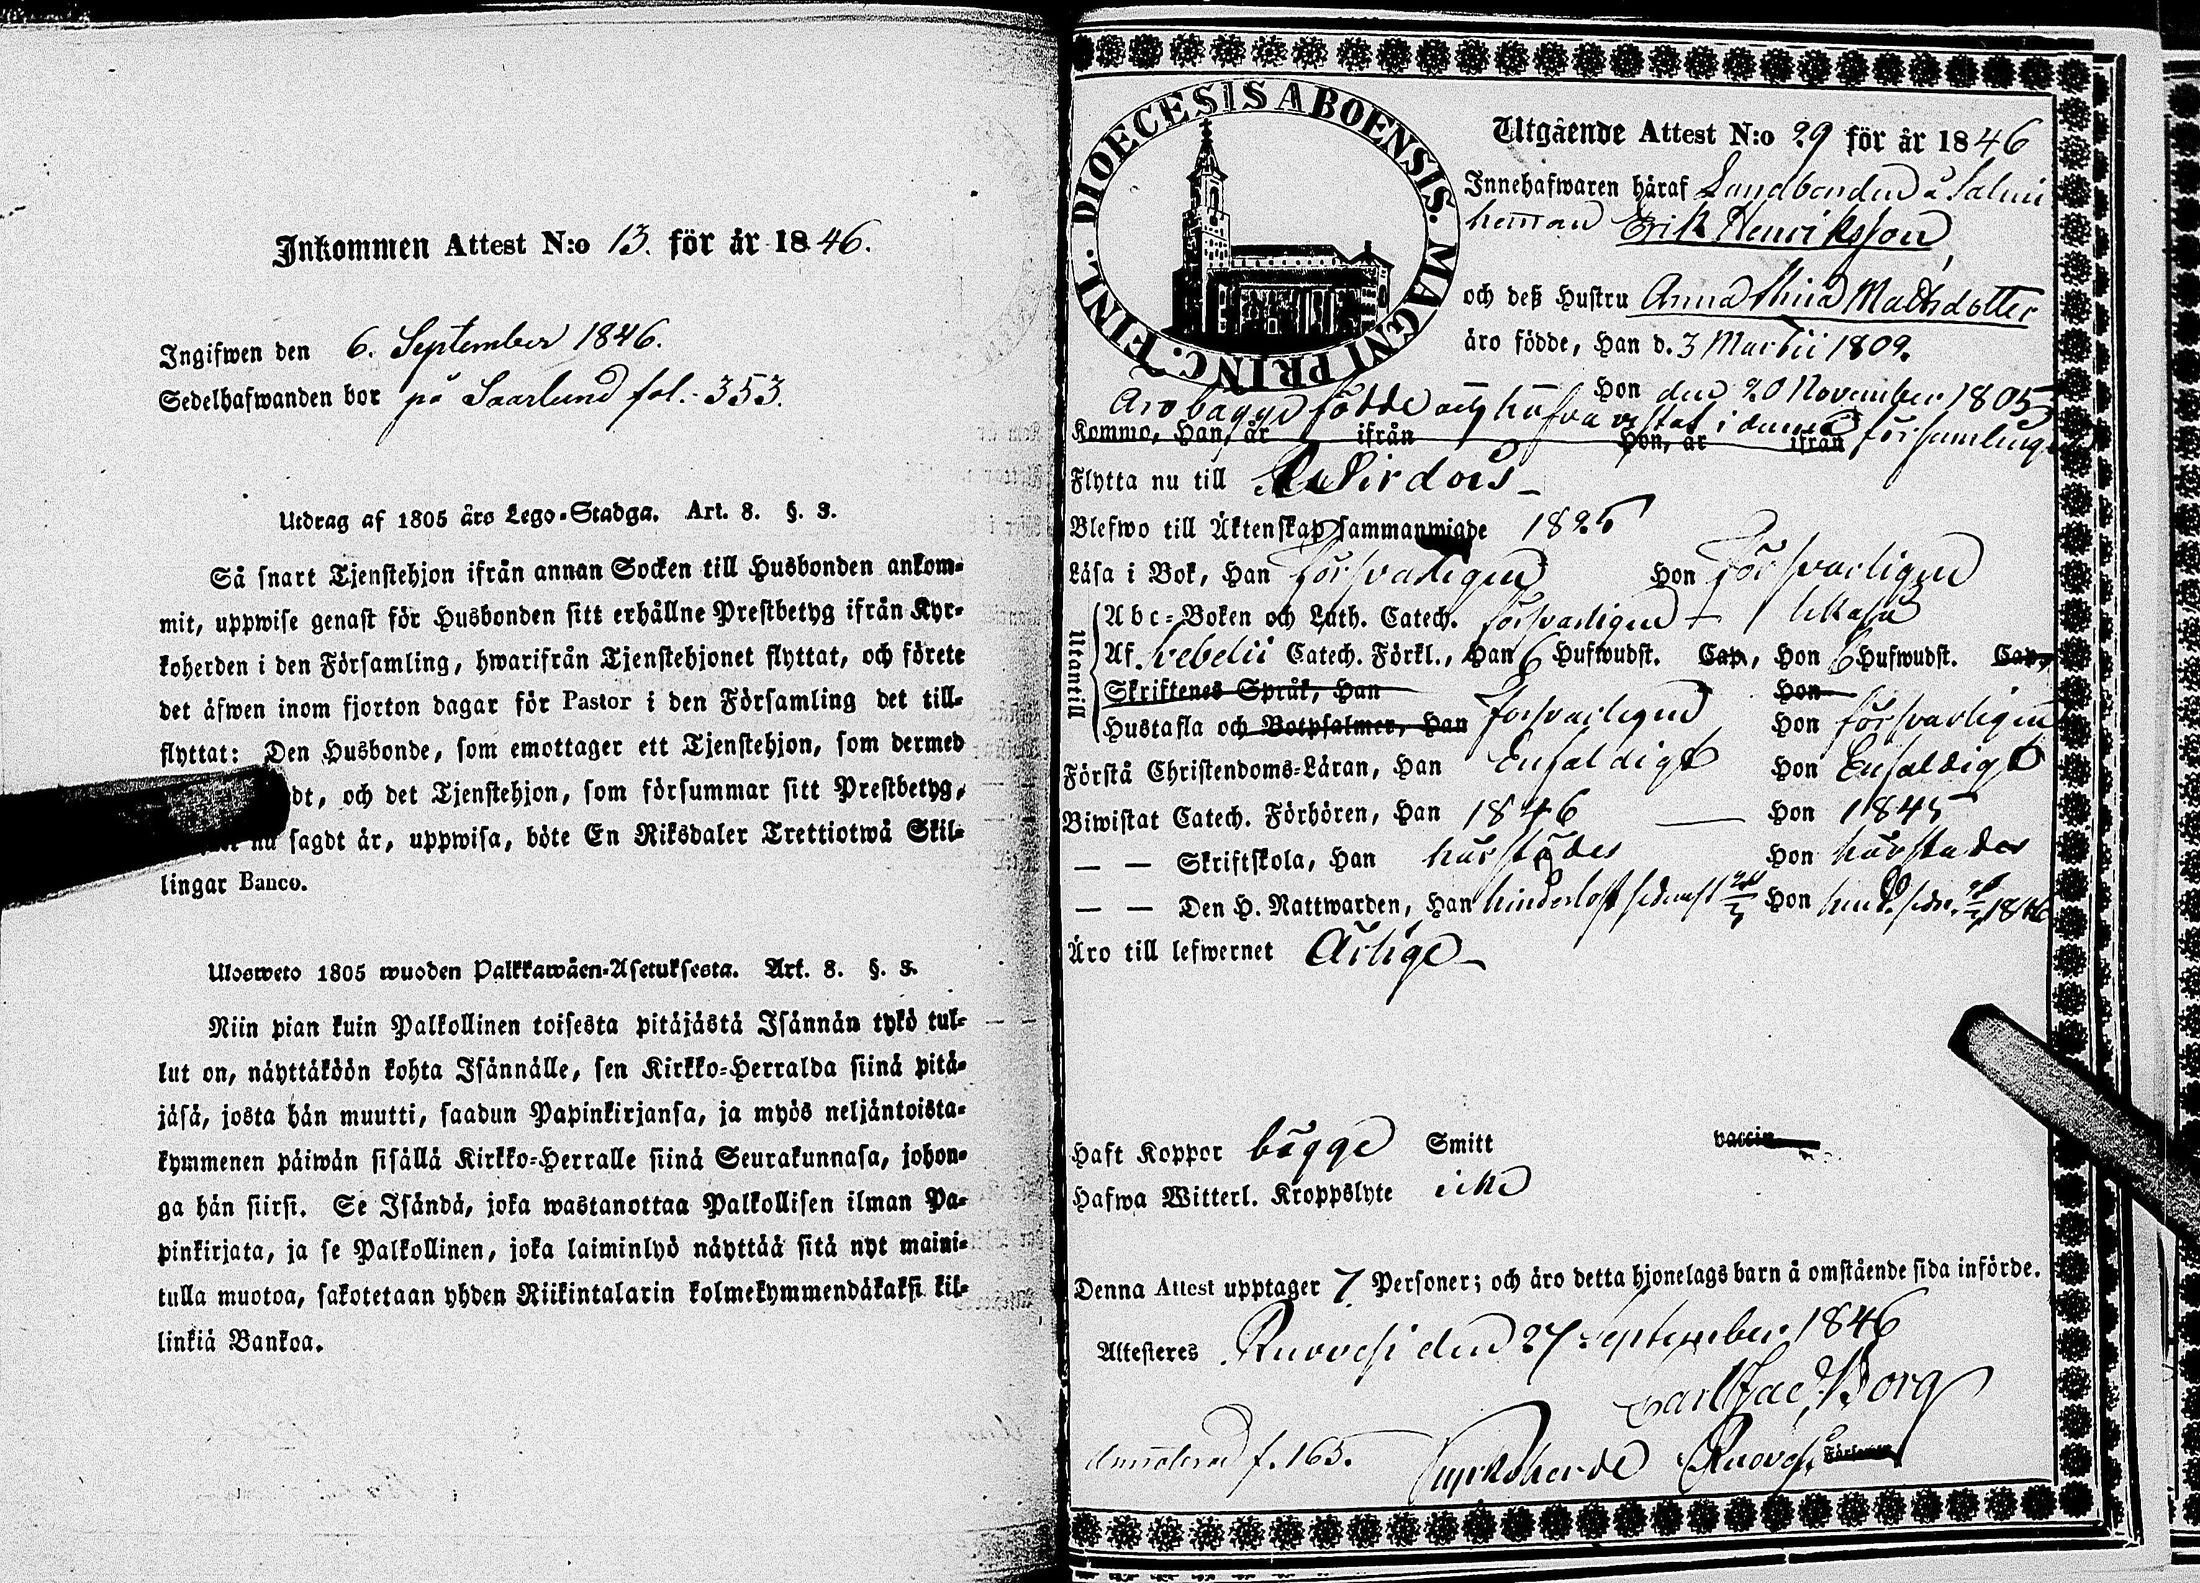 Inkommen Attest N:o 13. för år 1846.
Ingifwen den 6. September 1846.
Sedelhafwanden bor på Saarlund fol. 353.
Utdrag af 1805 års Lego-Stadga. Art. 8. §. 3.
Så snart Tjenstehjon ifrån annan Socken till Husbonden ankom-
mit, uppwise genast för Husbonden sitt erhållne Prestbetyg ifrån Kyr-
koherden i den Församling, hwarifrån Tjenstehjonet flyttat, och förete
det äfwen inom fjorton dagar för Pastor i den Församling det till-
flyttat: Den Husbonde, som emottager ett Tjenstehjon, som dermed
och det Tjenstehjon, som försummar sitt Prestbetyg,
nu sagdt är, uppwisa, böte En Riksdaler Trettiotwå Skil-
lingar Banco.
Ulosweto 1805 wuoden Palkkawäen-Asetuksesta. Art. 8. §. 3.
Niin pian kuin Palkollinen toisesta pitäjästä Isännän tykö tul-
lut on, näyttäköön kohta Isännälle, sen Kirkko-Herralda siinä pitä-
jäsä, josta hän muutti, saadun Papinkirjansa, ja myös neljäntoista-
kymmenen päiwän sisällä Kirkko-Herralle siinä Seurakunnasa, johon-
ga hän siirsi. Se Isändä, joka wastanottaa Palkollisen ilman Pa-
pinkirjata, ja se Palkollinen, joka laiminlyö näyttää sitä nyt maini-
tulla muotoa, sakotetaan yhden Riikintalarin kolmekymmendäkaksi kil-
linkiä Bankoa.
DIOECESIS ABOENSIS. MAGNI PRINC. FINL.
Utgående Attest N:o 29 för år 1846
Innehafwaren häraf Landbonden å Salmi
hemman Erik Henriksson
och deß Hustru Anna Stina Mattsdotter
äro födde, Han d. 3 Martii 1809.
Hon den 20 November 1805
Äro bägge födde och hafva vistats i denna församling
Kommo, Han, år ifrån Hon, år ifrån
Flytta nu till Wirdois
Blefwo till Äktenskap sammanwigde 1825
Läsa i Bok, Han försvarligen Hon försvarligen
Utantill
Abc-Boken och Luth. Catech. försvarligen
Af Svebelii Catech. Förkl., Han 6 Hufwudst. Cap., Hon 6 Hufwudst. Cap.,
Skriftenes Språk, Han Hon
Hustafla och Botpsalmer, Han försvarligen Hon försvarligen
Förstå Christendoms-Läran, Han Enfaldigt Hon Enfaldigt
Biwistat Catech. Förhören, Han 1846 Hon 1845
— — Skriftskola, Han härstädes Hon härstädes
— — Den H. Nattwarden, Han hinderlöst sednast Hon hind. sedn. 1846
Äro till lefwernet Ärlige
Haft Koppor bägge Smitt vaccin
Hafwa Witterl. Kroppslyte icke
Denna Attest upptager 7 Personer; och äro detta hjonelags barn å omstående sida införde.
Attesteres Ruovesi den 27 September 1846
Carl Jac. Borg
f. 165. Kyrkoherde Ruovesi Församl.